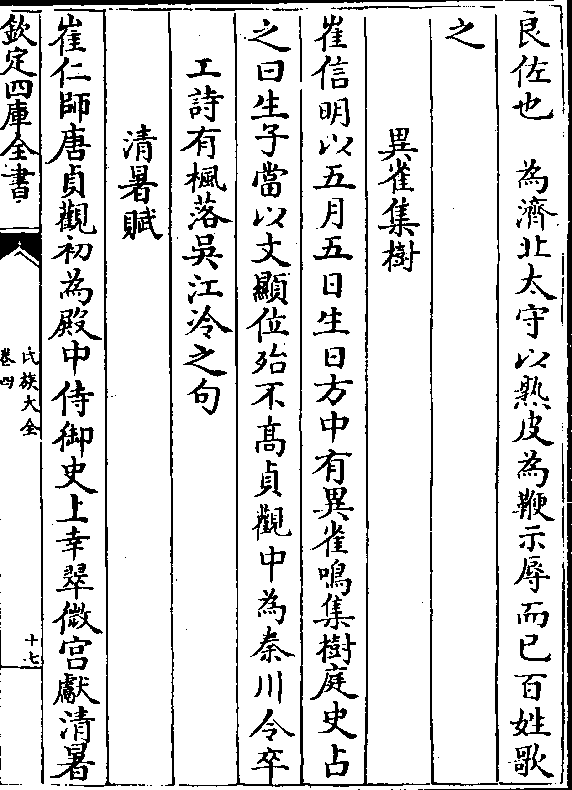 良佐也　為濟北太守以熟皮為鞭示辱而已百姓歌
之
異雀集樹
崔信明以五月五日生日方中有異雀鳴集樹庭史占
之曰生子當以文顯位殆不髙貞觀中為秦川令卒
工詩有楓落吳江冷之句
清暑賦
崔仁師唐貞觀初為殿中侍御史上幸翠微宫獻清暑
欽定四庫全書
氏族大全
卷四
十七